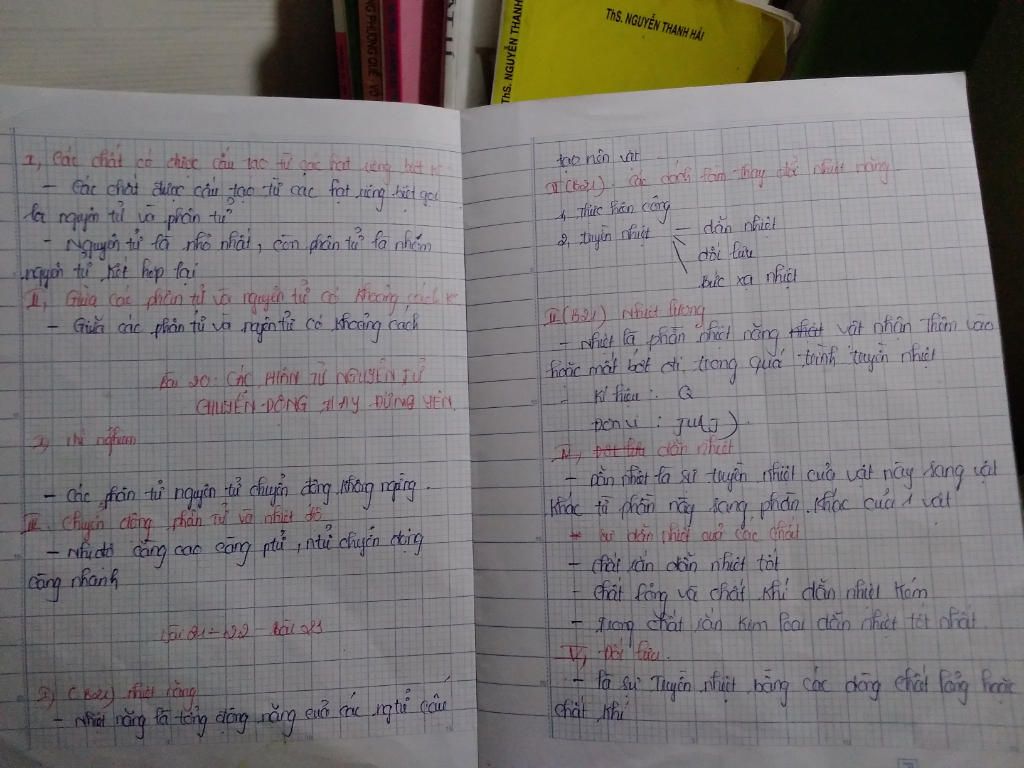 ThS. NGUYỄN THANH HẢI
ThS. NGUYỄN THANH
PHƯƠNG QUẾ - VŨ
I, Các chất có được cấu tạo từ các hạt riêng biệt k
- Các chất được cấu tạo từ các hạt riêng biệt gọi
là nguyên tử và phân tử
- Nguyên tử là nhỏ nhất, còn phân tử là nhóm
nguyên tử kết hợp lại
II, Giữa các phân tử và nguyên tử có khoảng cách k
- Giữa các phân tử và ngyên tử có khoảng cách
Bài 20: CÁC PHÂN TỬ NGUYÊN TỬ
CHUYỂN ĐỘNG HAY ĐỨNG YÊN.
I, thí nghiệm
- Các phân tử nguyên tử chuyển động không ngừng.
III. Chuyển động phân tử và nhiệt độ
- Nhiệt độ càng cao càng ptử, ntử chuyển động
càng nhanh
Bài 21 - 22 - Bài 23
I, (B21) nhiệt năng
- Nhiệt năng là tổng động năng của các ngtử cấu
tạo nên vật
II (B21). Các cách làm thay đổi nhiệt năng.
1, Thực hiện công
2, truyền nhiệt - dẫn nhiệt
đối lưu
Bức xạ nhiệt
III (B21) Nhiệt lượng
- Nhiệt là phần nhiệt năng vật nhận thêm vào
hoặc mất bớt đi trong quá trình truyền nhiệt
Kí hiệu : Q
Đơn vị : JU(J)
IV, dẫn nhiệt
- Dẫn nhiệt là sự truyền nhiệt của vật này sang vật
khác từ phần này sang phần khác của 1 vật
* Sự dẫn nhiệt của các chất
- Chất rắn dẫn nhiệt tốt
- Chất lỏng và chất khí dẫn nhiệt kém
- Trong chất rắn kim loại dẫn nhiệt tốt nhất.
V, Đối lưu.
- là sự Truyền nhiệt bằng các dòng chất lỏng hoặc
chất khí